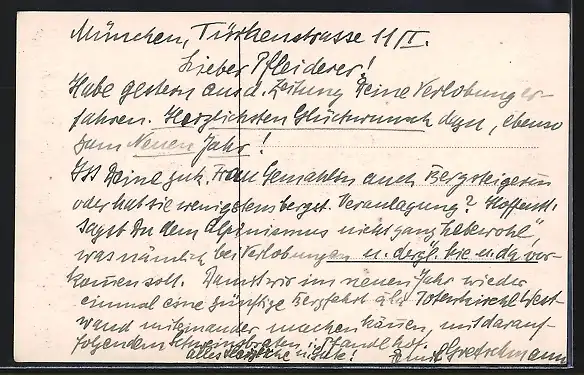 München, Türkenstrasse 11/I.
Lieber Pfleiderer!
Habe gestern aus d. Zeitung Deine Verlobung er-
fahren. Herzlichsten Glückwunsch dazu, ebenso
zum Neuen Jahr!
Ist Deine zuk. Frau Gemahlin auch Bergsteigerin
oder hat sie wenigstens bergst. Veranlagung? Hoffentl.
sagst Du dem Alpinismus nicht ganz "lebewohl",
was nämlich bei Verlobungen u. dergl. hie u. da vor-
kommen soll. Damit wir im neuen Jahr wieder
einmal eine zünftige Bergfahrt à la Totenkirchl West-
wand miteinander machen können, mit darauf-
folgendem Schweinsbraten i. Pfandlhof.
alles u. Gute! Gretschmann